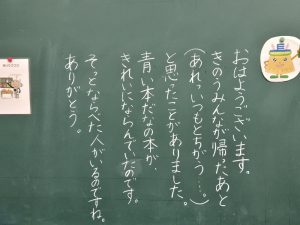 おはようございます。
きのうみんなが帰ったあと
（あれっ、いつもとちがう…。）
と思ったことがありました。
青い本だなの本が、
きれいにならんでいたのです。
そっとならべた人がいるのですね。
ありがとう。